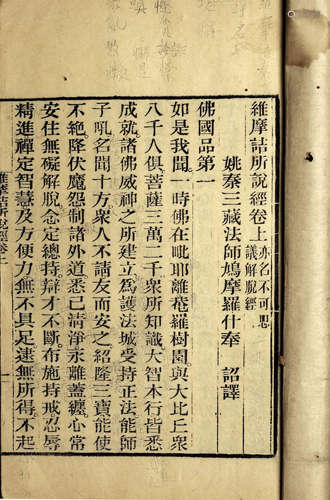 維摩詰所說經卷上亦名不可思議解脫經
姚秦三藏法師鳩摩羅什奉 詔譯
佛國品第一
如是我聞一時佛在毗耶離菴羅樹園與大比丘衆
八千人俱菩薩三萬二千衆所知識大智本行皆悉
成就諸佛威神之所建立爲護法城受持正法能師
子吼名聞十方衆人不請友而安之紹隆三寶能使
不絶降伏魔怨制諸外道悉已清淨永離蓋纏心常
安住無礙解脫念定總持辯才不斷布施持戒忍辱
精進禪定智慧及方便力無不具足逮無所得不起
維摩詰所說經卷上